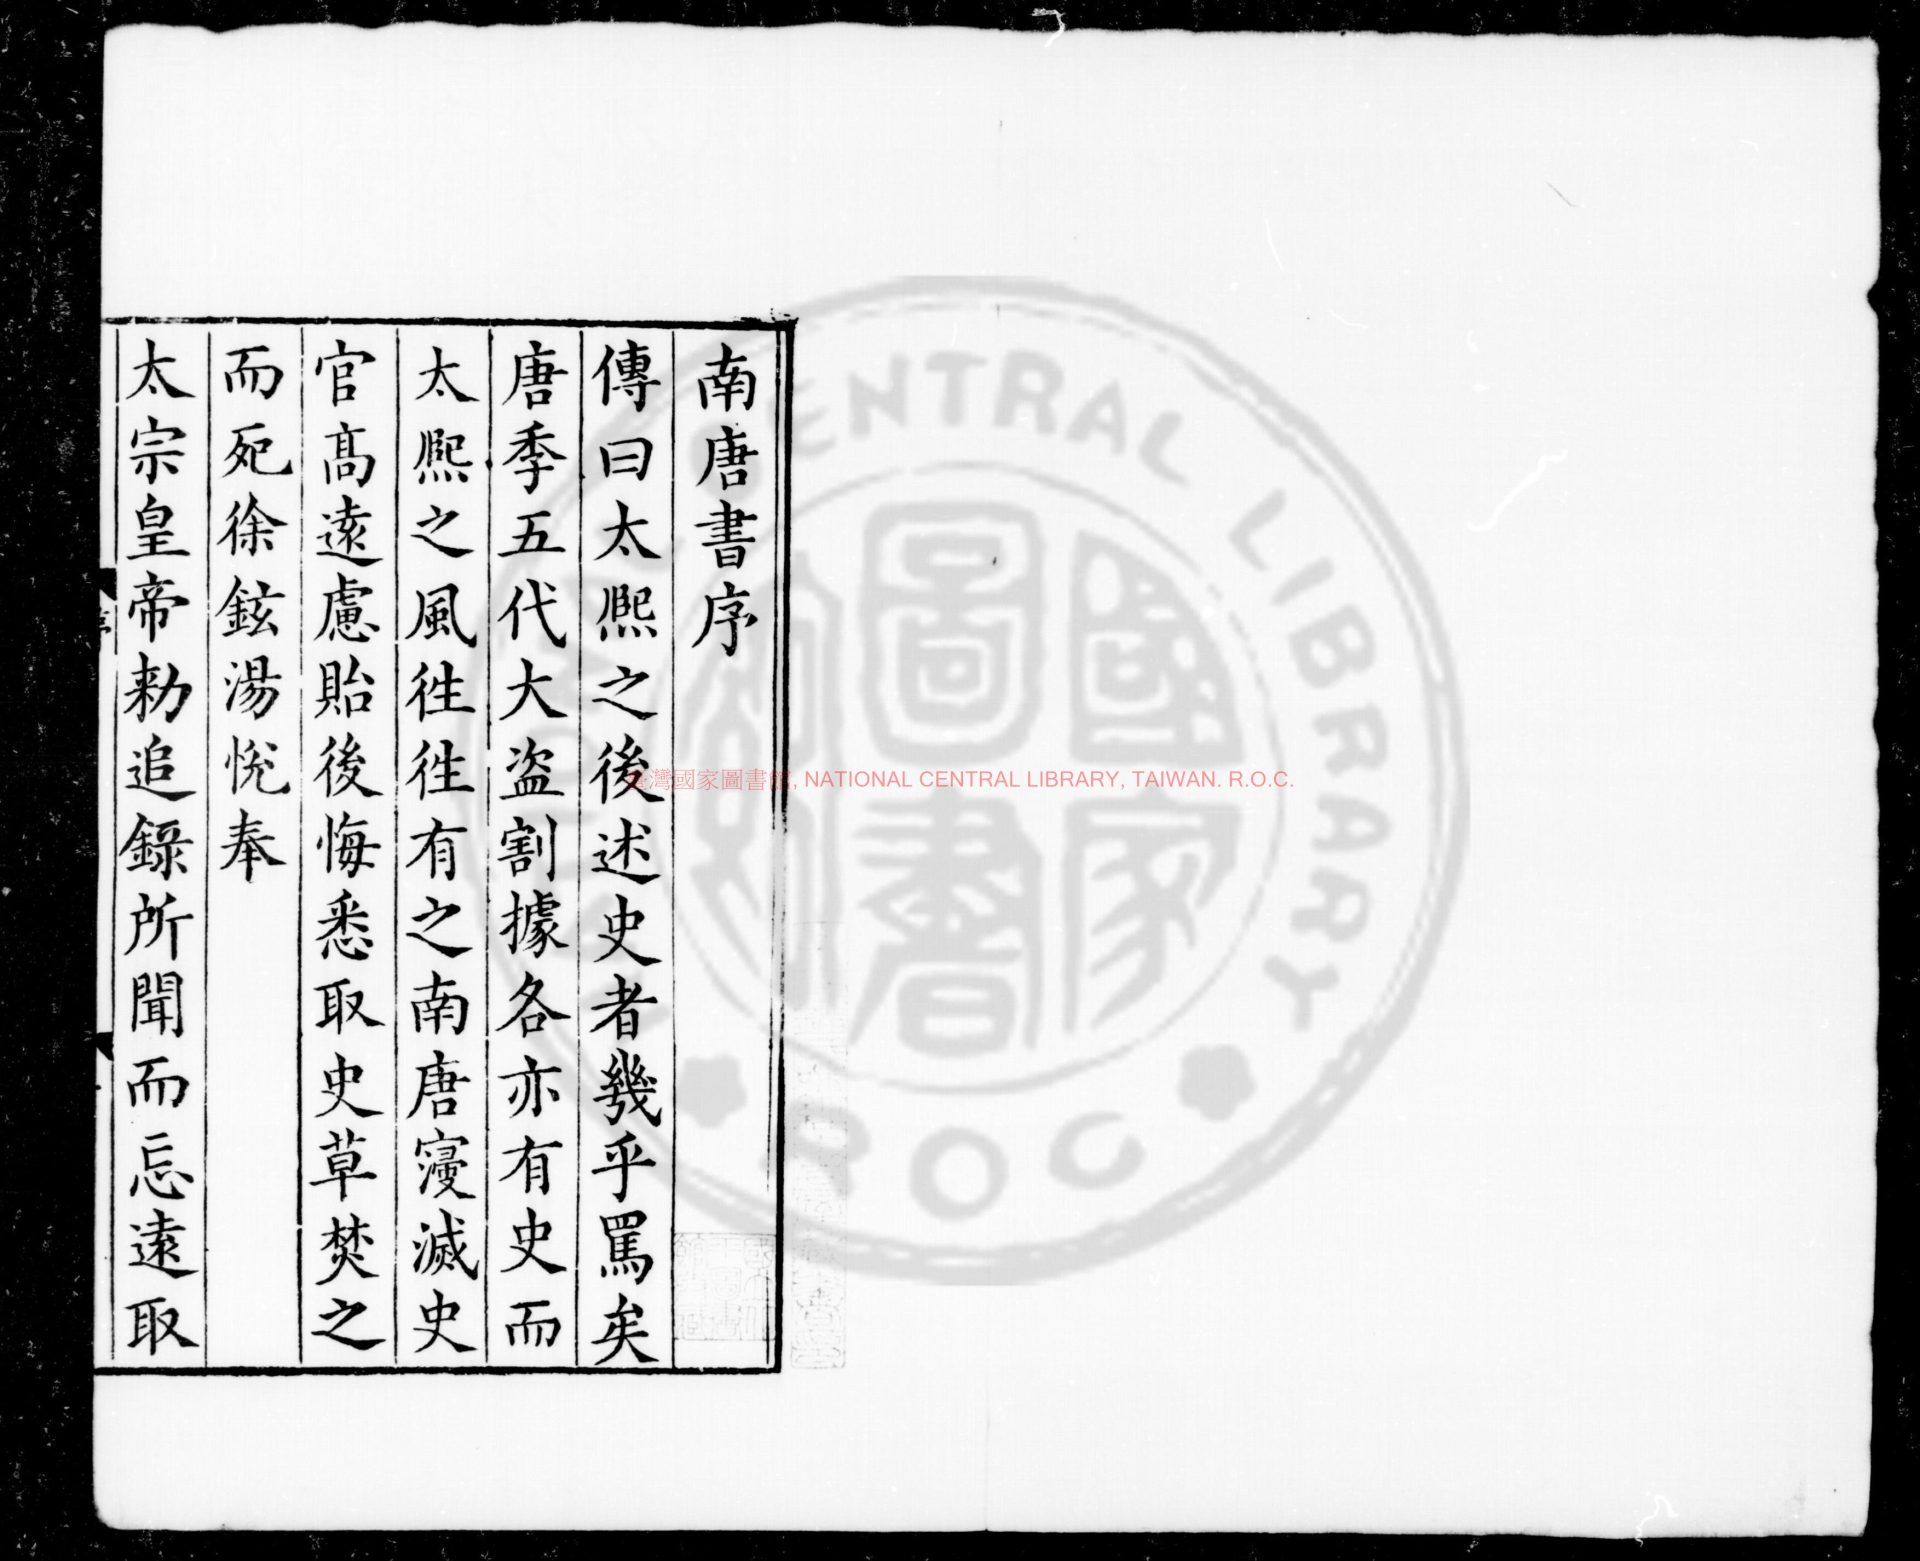 南唐書序
傳曰太熈之後述史者幾乎罵矣
唐季五代大盗割據各亦有史而
太熈之風徃徃有之南唐寖滅史
官髙遠慮貽後悔悉取史草焚之
而死徐鉉湯悅奉
太宗皇帝勑追錄所聞而忘遠取
臺灣國家圖書館, NATIONAL CENTRAL LIBRARY, TAIWAN. R.O.C.
CENTRAL LIBRARY
國家圖書館
ROC